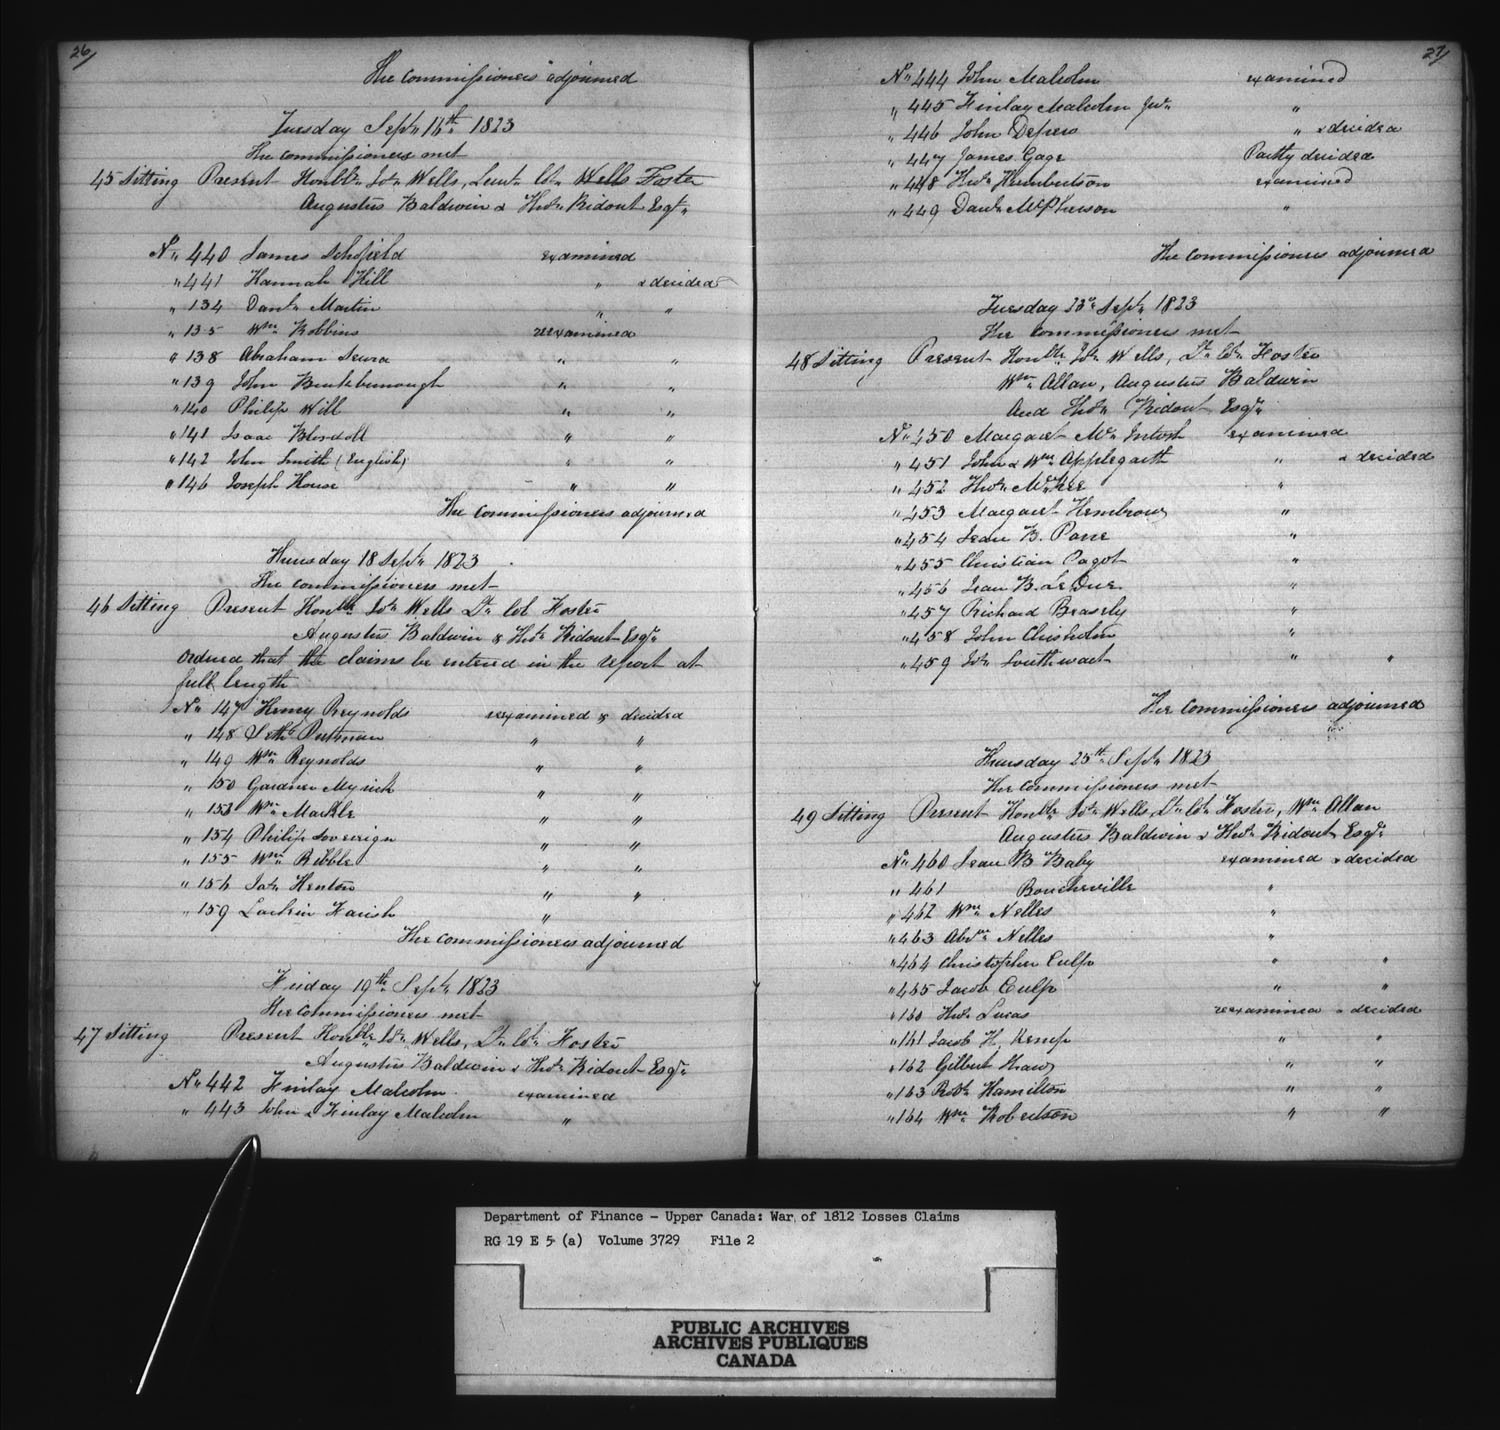 26/
The Commissioners adjourned
Tuesday Sept. 16th 1823
The commissioners met
45 Sitting Present Honble Jos. Wells, Lieut. Col. Wells Foster
Augustus Baldwin & Thos. Ridout Esqr.
No. 440 James Schofield examined
" 441 Hannah Hill " & decided
" 134 Danl. Martin " "
" 135 Wm. Robbins reexamined
" 138 Abraham " "
" 139 John " "
" 140 Philip Will " "
" 141 Isaac " "
" 142 John Smith (English) " "
" 146 Joseph House " "
The commissioners adjourned
Thursday 18 Sept. 1823
The commissioners met
46 Sitting Present Honble Jos. Wells Lt. Col Foster
Augustus Baldwin & Thos. Ridout Esqr.
Ordered that the claims be entered in the report at
full length
No. 147 Henry Reynolds reexamined & decided
" 148 Seth " "
" 149 Wm. Reynolds " "
" 150 Gardner Myrick " "
" 153 Wm. Markle " "
" 154 Philip Sovereign " "
" 155 Wm. Ribble " "
" 156 " "
" 159 "
The commissioners adjourned
Friday 19th Sept. 1823
The commissioners met
47 Sitting Present Honble Jos. Wells, Lt. Col. Foster
Augustus Baldwin & Thos. Ridout Esqr.
No. 442 Finlay Malcolm examined
" 443 John & Finlay Malcolm "
27/
No. 444 John Malcolm examined
" 445 Finlay Malcolm Junr. "
" 446 John Depew " & decided
" 447 James Gage Partly decided
" 448 Thos. examined
" 449 Danl. McPherson "
The commissioners adjourned
Tuesday 23d. Sept. 1823
The Commissioners met
48 Sitting Present Honble Jos. Wells, Lt. Col. Foster
Wm. Allan, Augustus Baldwin
And Thos. Ridout Esqr.
No. 450 Margaret McIntosh examined
" 451 John & Wm. Applegarth " & decided
" 452 Thos. McKee "
" 453 Margaret Hembrow "
" 454 Jean B. "
" 455 Christian "
" 456 Jean B. Le Duc "
" 457 Richard Beasely "
" 458 John Chisholm "
" 459 Jos. Southward " "
The Commissioners adjourned
Thursday 25th Sept. 1823
The Commissioners met
49 Sitting Present Honble Jos. Wells, Lt. Col. Foster, Wm. Allan
Augustus Baldwin & Thos. Ridout Esqr.
No. 460 Jean B Baby examined & decided
" 461 Boucherville "
" 462 Wm. Nelles "
" 463 Abrm. Nelles "
" 464 Christopher Culp " "
" 465 Jacob Culp " "
" 160 Thos. Lucas reexamined & decided
" 161 Jacob H. Kemp " "
" 162 Gilbert Shaw " "
" 163 Robt. Hamilton " "
" 164 Wm. Robertson " "
Department of Finance - Upper Canada: War of 1812 Losses Claims
RG 19 E 5 (a) Volume 3729 File 2
PUBLIC ARCHIVES
ARCHIVES PUBLIQUES
CANADA